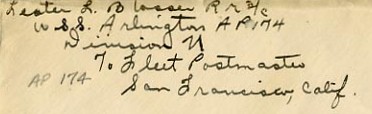 Lester L. Blosser R R 2/c
U.S.S. Arlington AP174
Division N
To Fleet Postmaster
AP 174
San Francisco, Calif.